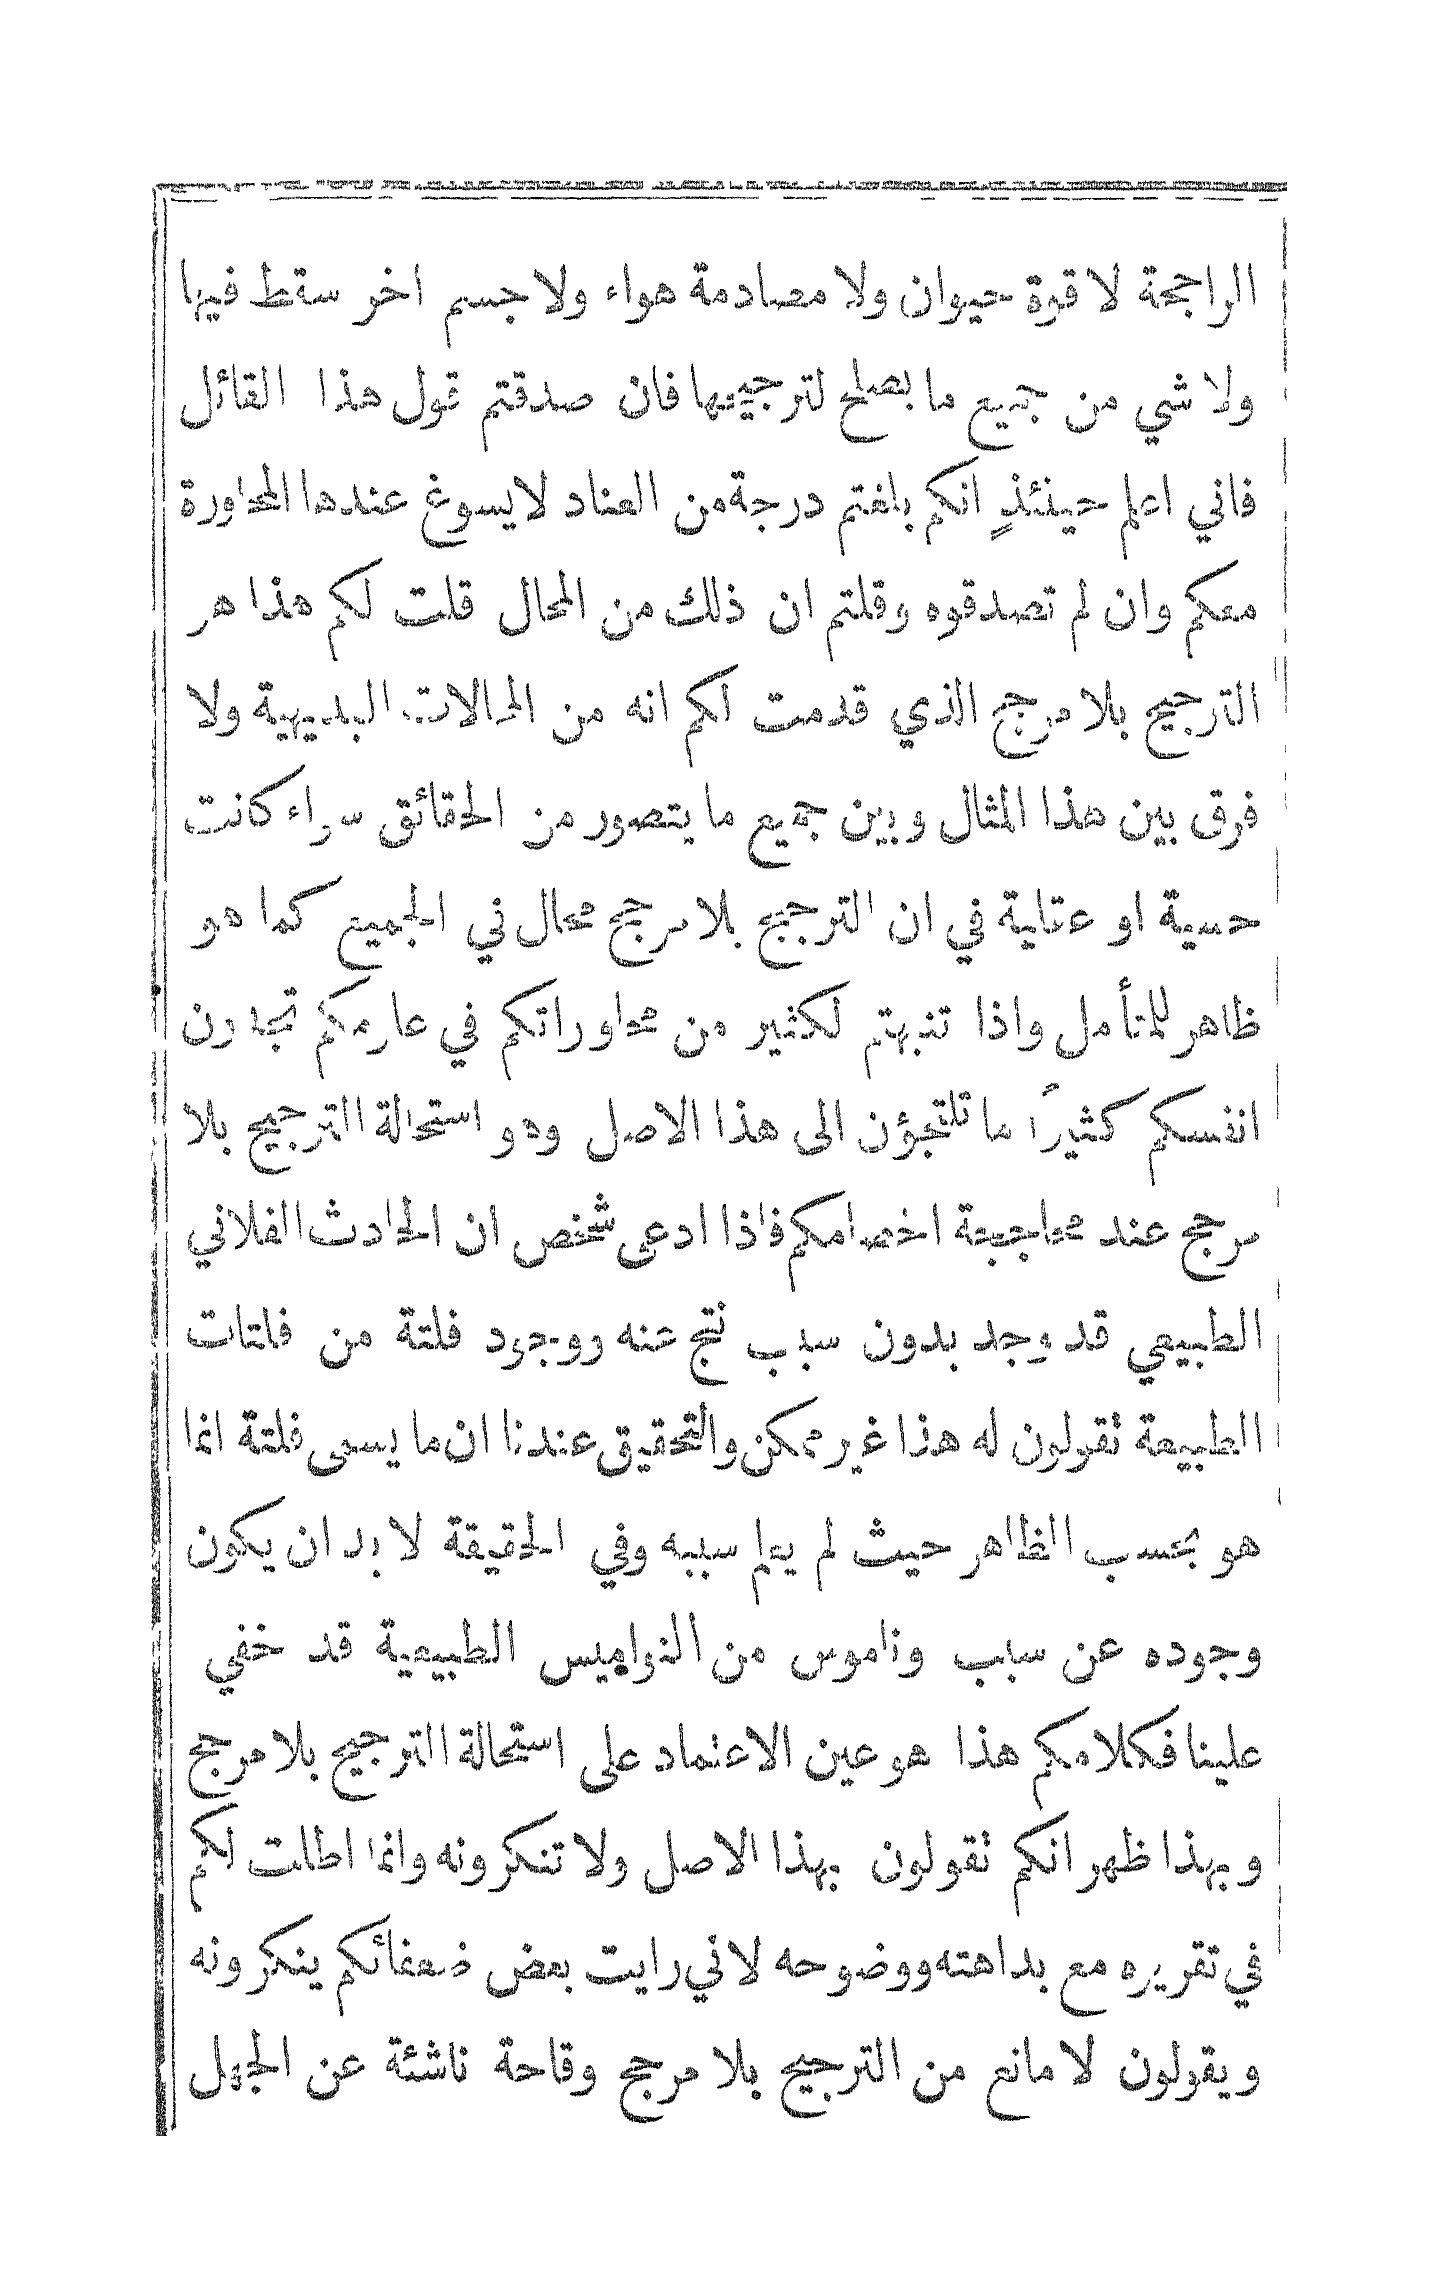 الراجحة لا قوة حيوان ولا مصادمة هواء ولا جسم اخر سقط فيها
ولا شي من جميع ما يصلح لترجيحها فان صدقتم قول هذا القائل
فاني اعلم حينئذٍ انكم بلغتم درجة من العناد لا يسوغ عندها المحاورة
معكم وان لم تصدقوه وقلتم ان ذلك من المحال قلت لكم هذا هو
الترجيح بلا مرجح الذي قدمت لكم انه من المحالات البديهية ولا
فرق بين هذا المثال وبين جميع ما يتصور من الحقائق سواء كانت
حسية او عقلية في ان الترجيح بلا مرجح محال في الجميع كما هو
ظاهر للمتأمل واذا تنبهتم لكثير من محاوراتكم في علومكم تجدون
انفسكم كثيرًا ما تلتجؤن الى هذا الاصل وهو استحالة الترجيح بلا
مرجح عند محاججة اخصامكم فاذا ادعى شخص ان الحادث الفلاني
الطبيعي قد وجد بدون سبب نتج عنه ووجوده فلتة من فلتات
الطبيعة تقولون له هذا غير ممكن والتحقيق عندنا ان ما يسمى فلتة انما
هو بحسب الظاهر حيث لم يعلم سببه وفي الحقيقة لا بد ان يكون
وجوده عن سبب وناموس من النواميس الطبيعية قد خفي
علينا فكلامكم هذا هو عين الاعتماد على استحالة الترجيح بلا مرجح
وبهذا ظهر انكم تقولون بهذا الاصل ولا تنكرونه وانما اطلت لكم
في تقريره مع بداهته ووضوحه لاني رايت بعض ضعفائكم ينكرونه
ويقولون لا مانع من الترجيح بلا مرجح وقاحة ناشئة عن الجهل